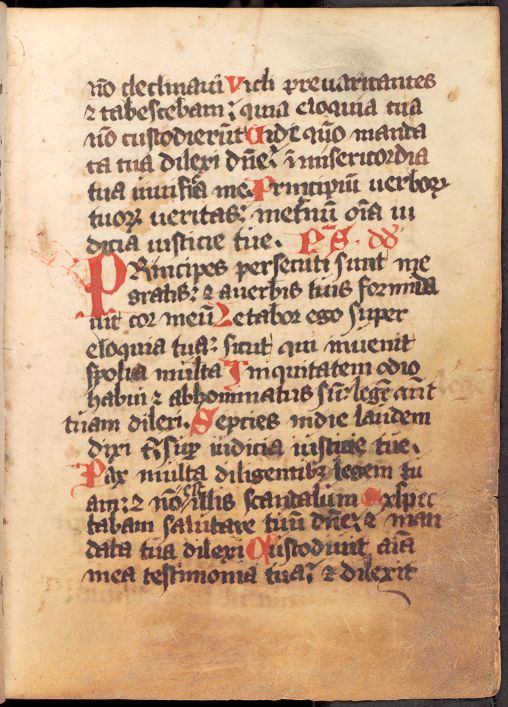 nō declinavi Vidi prevaricantes
⁊ tabescebam: quia eloquia tua
nō custodierūt Vide quō manda
ta tua dilexi dn̄e: in misericordia
tua vivifica me. Principiū verborꝝ
tuorꝝ veritas: in eternū oīa iu
dicia iusticie tue. Ps. dd
PRincipes persecuti sunt me
gratis: ⁊ a verbis tuis formida
vit cor meū Letabor ego super
eloquia tua: sicut qui invenit
spolia multa Iniquitatem odio
habui ⁊ abhominatus sū: legē aūt
tuam dilexi. Septies in die laudem
dixi t̄ sup iudicia iusticie tue.
Pax multa diligentibꝫ legem tu
am: ⁊ nō est illis scandalum Exspec
tabam salutare tuū dn̄e: ⁊ man
data tua dilexi Custodivit aīa
mea testimonia tua: ⁊ dilexit